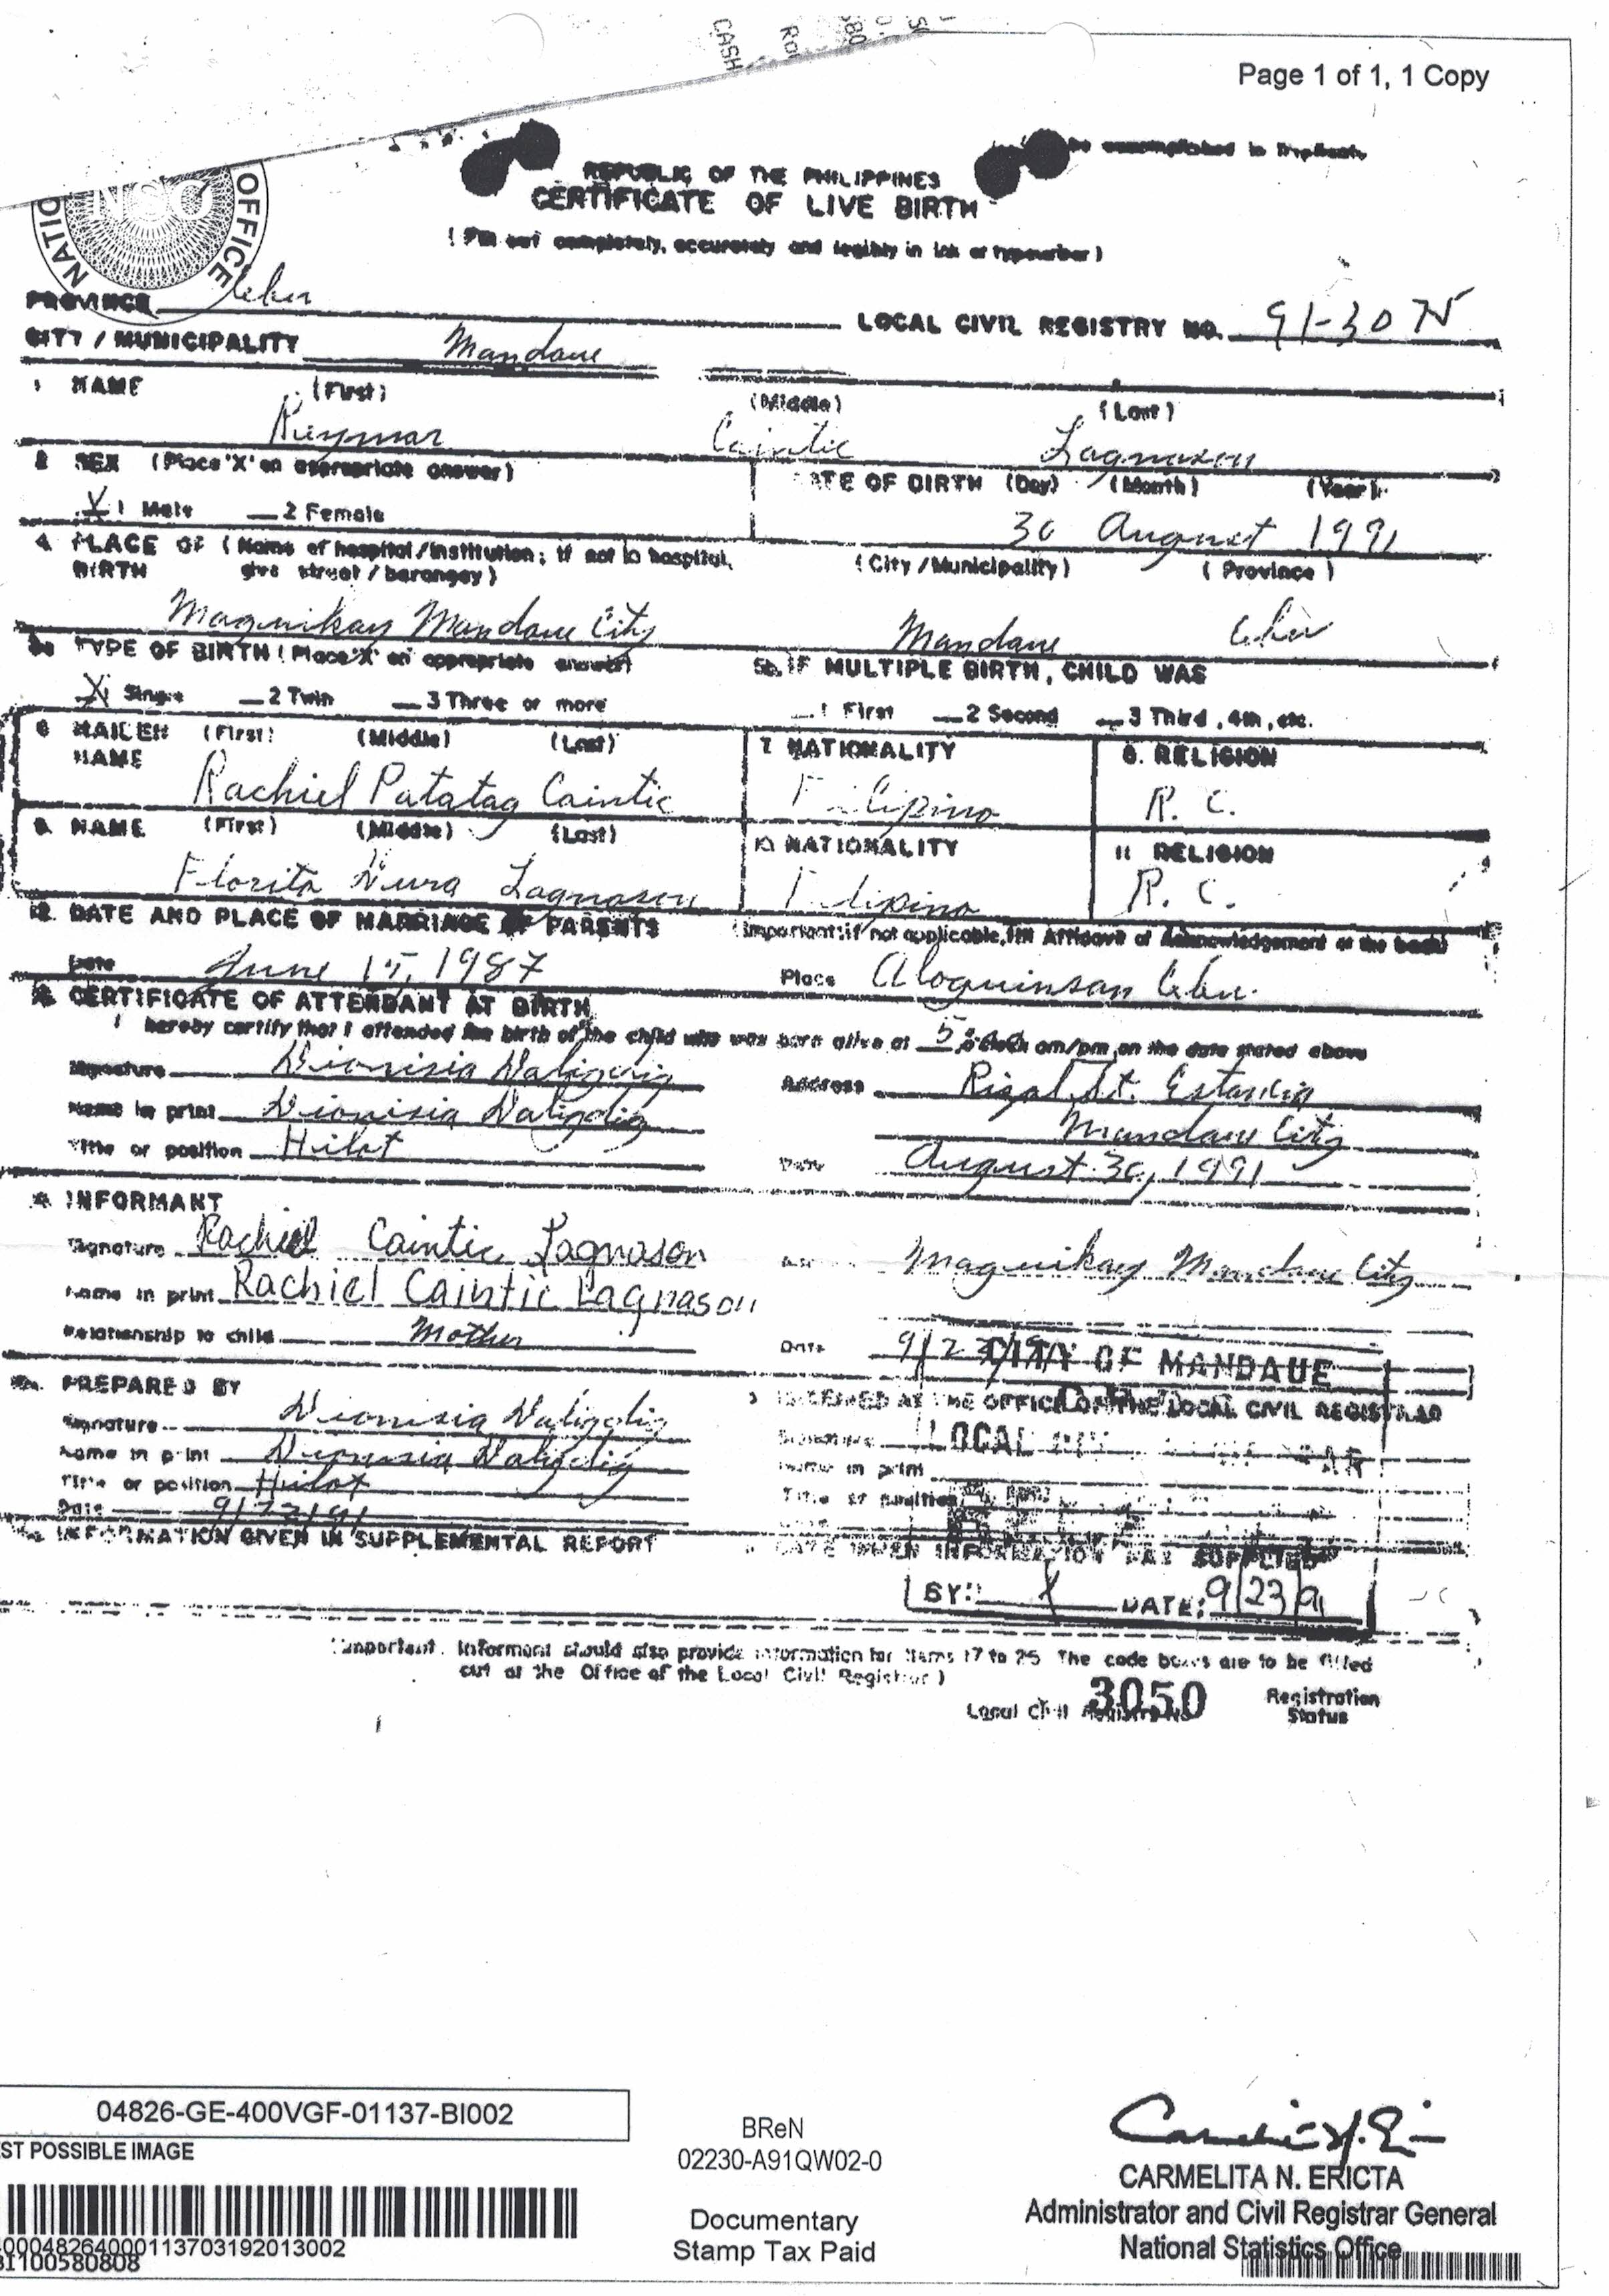 CASH
Page 1 of 1, 1 Copy
be accomplished in Triplicate
REPUBLIC OF THE PHILIPPINES
CERTIFICATE OF LIVE BIRTH
(Fill out completely, accurately and legibly in ink or typewriter)
NSO
OFFICE
PROVINCE Cebu
LOCAL CIVIL REGISTRY NO. 91-30
CITY / MUNICIPALITY Mandaue
1 NAME (First) (Middle) (Last)
Reymar Caintic Lagnason
2 SEX (Place 'X' on appropriate answer)
DATE OF BIRTH (Day) (Month) (Year)
X 1 Male 2 Female
30 August 1991
4. PLACE OF BIRTH (Name of hospital/institution; if not in hospital, give street / barangay)
(City/Municipality) (Province)
Maguikay Mandaue City Mandaue Cebu
TYPE OF BIRTH (Place 'X' on appropriate answer)
5b. IF MULTIPLE BIRTH, CHILD WAS
X 1 Single 2 Twin 3 Three or more
1 First 2 Second 3 Third, 4th, etc.
6 MAIDEN NAME (First) (Middle) (Last)
7. NATIONALITY
8. RELIGION
Rachiel Patatag Caintic Filipino R. C.
9. NAME (First) (Middle) (Last)
10 NATIONALITY
11 RELIGION
Lagnason Filipino R. C.
12. DATE AND PLACE OF MARRIAGE OF PARENTS
(Important: if not applicable, fill Affidavit of Acknowledgement at the back)
Date June 15, 1987
Place Aloguinsan Cebu
CERTIFICATE OF ATTENDANT AT BIRTH
I hereby certify that I attended the birth of the child who was born alive at 5 o'clock am/pm on the date stated above
Signature Dionisia Daligdig
Address Rizal St. Estancia
Name in print Dionisia Daligdig
Mandaue City
Title or position Hilot
Date August 30, 1991
INFORMANT
Signature Rachiel Caintic Lagnason
Maguikay Mandaue City
Name in print Rachiel Caintic Lagnason
Relationship to child Mother
Date
CITY OF MANDAUE
PREPARED BY
RECEIVED AT THE OFFICE OF THE LOCAL CIVIL REGISTRAR
Signature Dionisia Daligdig
Signature
LOCAL
Name in print Dionisia Daligdig
Name in print
Title or position Hilot
Title or position
Date 9/22/91
INFORMATION GIVEN IN SUPPLEMENTAL REPORT
DATE WHEN INFORMATION WAS SUPPLIED
BY: DATE: 9/23/91
(Important. Informant should also provide information for items 17 to 25. The code boxes are to be filled
out at the Office of the Local Civil Registrar)
Local Civil Registry No 3050
Registration Status
04826-GE-400VGF-01137-BI002
ST POSSIBLE IMAGE
BReN
02230-A91QW02-0
Documentary
Stamp Tax Paid
CARMELITA N. ERICTA
Administrator and Civil Registrar General
National Statistics Office
00048264000113703192013002
BI100580808